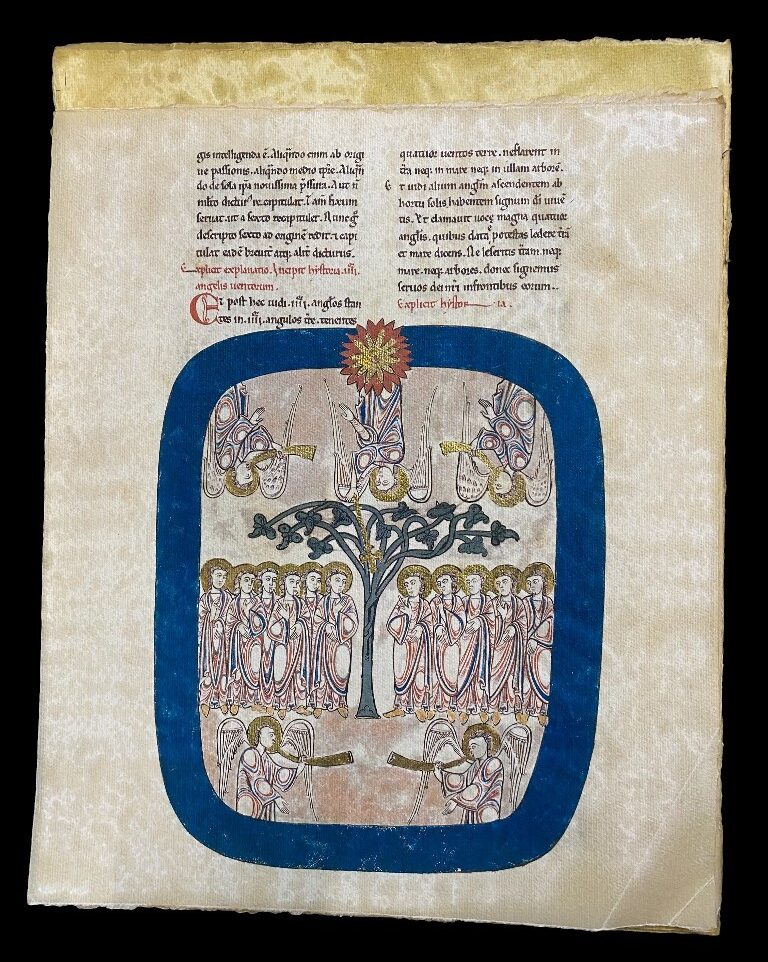 gis intelligenda ē. Aliqn̄do enim ab origi
ne passionis. aliqn̄do medio tp̄re. Aliqn̄
do de sola ip̄a novissima p̄ssura. Aut n̄
dictur᾿ recapitulet.
seruat. ut a sexto recapitulet. Nunc g̊
descripto sexto ad originē redit. ⁊ capi
tulat eadē breuit᾿ atq; alit᾿ dicturus.
Explicit explanatio. Incipit hystoria .iiii.
angelis uentorum.
Et post hoc uidi .iiii. anglōs stan
tes in .iiii. angulos t̄re. tenentes
quatuor uentos terre. ne flarent in
t̄ra neq; in mare neq; in ullam arborē.
Et uidi alium anglm̄ ascendentem ab
hortu solis habentem signum d̄i uiuē
tis. Et clamauit uoce magna quatuor
anglīs. quibus data ē potestas ledere t̄rā
et mare dicens. Ne leseritis t̄ram. neq;
mare. neq; arbores. donec signemus
seruos dei nr̄i infrontibus eorum.
Explicit hystoria.